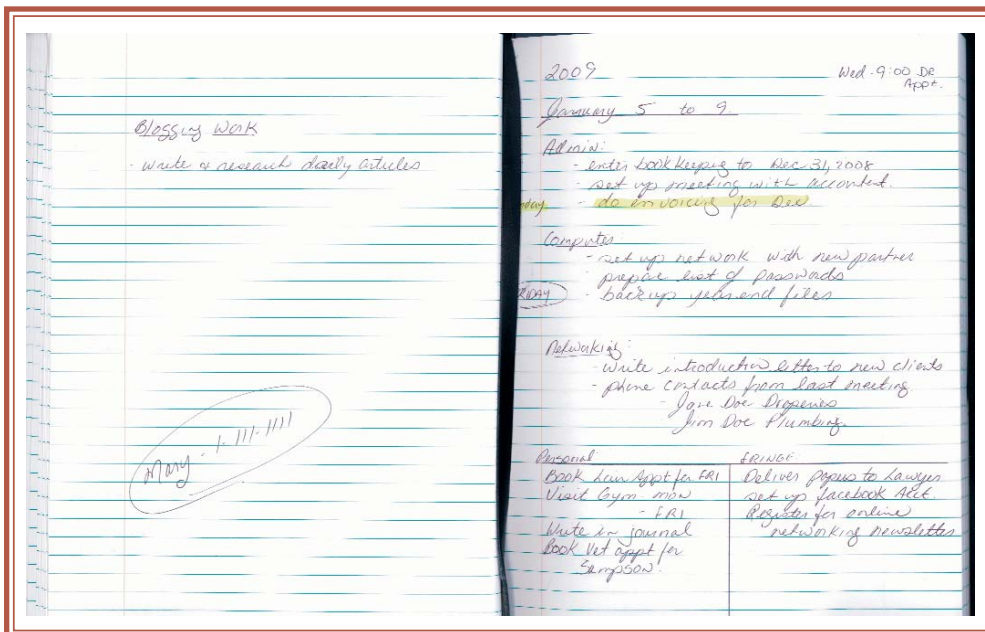 Blogging Work
- write & research daily articles
Mary - 1-111-1111
2009
Wed - 9:00 De
Appt.
January 5 to 9
Admin:
- enter bookkeeping to Dec 31, 2008
- set up meeting with accountent.
day - do envoicing for Dec
Computer:
- set up network with new partner
- prepare list of passwords
RIDAY - back up year end files
Networking:
- write introduction letter to new clients
- phone contacts from last meeting
- Jane Doe Draperies
Jim Doe Plumbing.
Personal
Book Appt for FRI
Visit Gym - mon
- FRI
Write in journal
Book Vet appt for
Sampson.
FRINGE:
Deliver papers to Lawyer
set up facebook Acct.
Register for online
networking newsletter